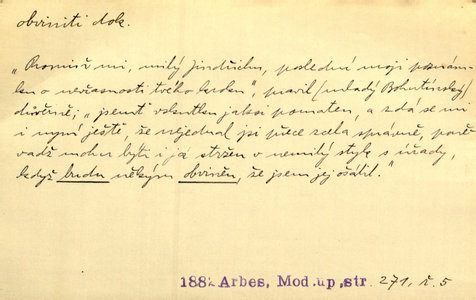 obviniti dok.
„Promiň mi, milý Jindřichu, poslední moji poznám-
ku o nevčasnosti tvého kuden", pravil /mladý Bohutínský/
důvěrně; „jsemť vskutku jaksi pomaten, a zdá se mi
i nyní ještě, že nejednal jsi přece zcela správně, poně-
vadž mohu býti i já stržen v nemilý styk s úřady,
když budu někým obviněn, že jsem jej ošálil."
1882 Arbes, Mod. up., str. 271, č. 5